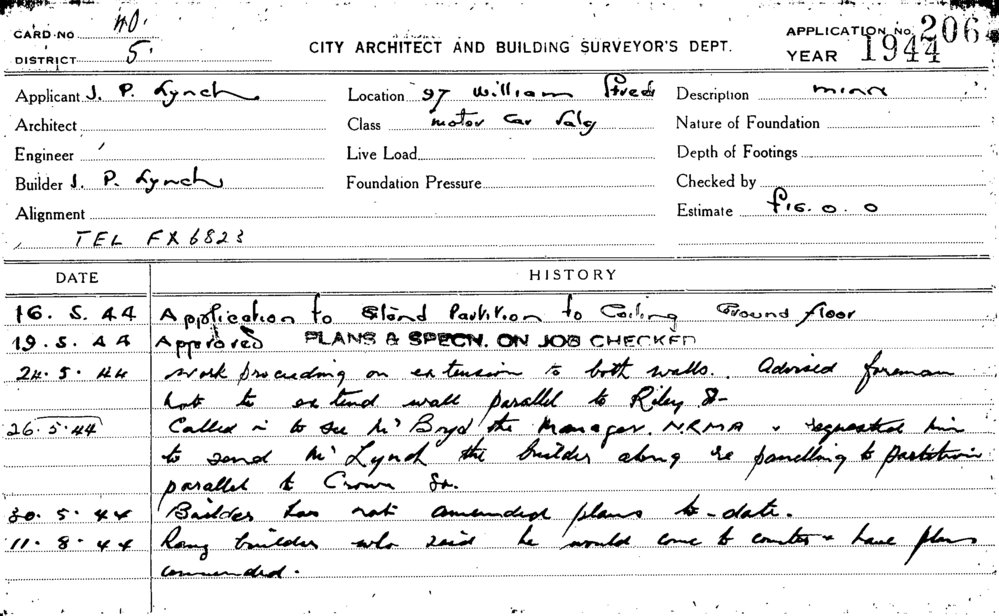 CARD NO 40.
DISTRICT 5.
CITY ARCHITECT AND BUILDING SURVEYOR'S DEPT.
APPLICATION No. 206
YEAR 1944
Applicant J. P. Lynch
Location 97 William Street
Description minor
Architect
Class motor car
Nature of Foundation
Engineer
Live Load
Depth of Footings
Builder J. P. Lynch
Foundation Pressure
Checked by
Alignment
Estimate £16. 0. 0
TEL FX 6823
DATE HISTORY
16. 5. 44 Application to Partition to Ceiling Ground floor
19. 5. 44 Approved PLANS & SPECN. ON JOB CHECKED
24. 5. 44 Work proceeding on extension to both walls. Advised foreman
not to extend wall parallel to Riley St
26. 5. 44 Called in to see Mr Boyd the Manager N.R.M.A & requested him
to send Mr Lynch the builder along re panelling to partition
parallel to Crown St.
30. 5. 44 Builder has not ammended plans to-date.
11. 8. 44 Rang builder who said he would come to counter & have plans
ammended.